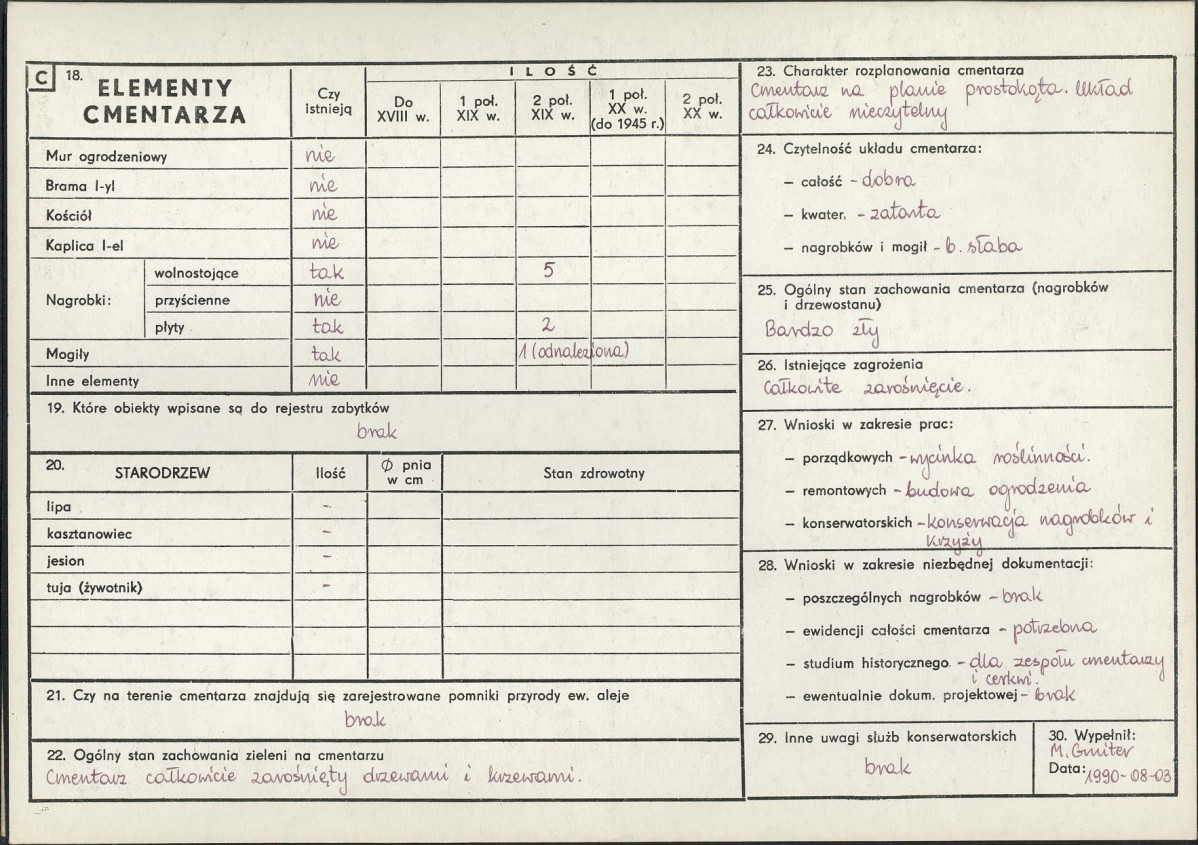 C 18. ELEMENTY CMENTARZA
Czy istnieją
ILOŚĆ
Do XVIII w.
1 poł. XIX w.
2 poł. XIX w.
1 poł. XX w. (do 1945 r.)
2 poł. XX w.
Mur ogrodzeniowy nie
Brama l-yl nie
Kościół nie
Kaplica l-el nie
Nagrobki:
wolnostojące tak 5
przyścienne nie
płyty tak 2
Mogiły tak 1 (odnaleziona)
Inne elementy nie
19. Które obiekty wpisane są do rejestru zabytków
brak
20. STARODRZEW Ilość Ø pnia w cm Stan zdrowotny
lipa -
kasztanowiec -
jesion -
tuja (żywotnik) -
21. Czy na terenie cmentarza znajdują się zarejestrowane pomniki przyrody ew. aleje
brak
22. Ogólny stan zachowania zieleni na cmentarzu
Cmentarz całkowicie zarośnięty drzewami i krzewami.
23. Charakter rozplanowania cmentarza
Cmentarz na planie prostokąta. Układ
całkowicie nieczytelny
24. Czytelność układu cmentarza:
– całość - dobra
– kwater. - zatarta
– nagrobków i mogił - b. słaba
25. Ogólny stan zachowania cmentarza (nagrobków
i drzewostanu)
Bardzo zły
26. Istniejące zagrożenia
Całkowite zarośnięcie.
27. Wnioski w zakresie prac:
– porządkowych - wycinka roślinności.
– remontowych - budowa ogrodzenia
– konserwatorskich - konserwacja nagrobków i
krzyży
28. Wnioski w zakresie niezbędnej dokumentacji:
– poszczególnych nagrobków - brak
– ewidencji całości cmentarza - potrzebna
– studium historycznego. - dla zespołu cmentarzy
i cerkwi.
– ewentualnie dokum. projektowej - brak
29. Inne uwagi służb konserwatorskich
brak
30. Wypełnił:
M. Gmiter
Data: 1990-08-03